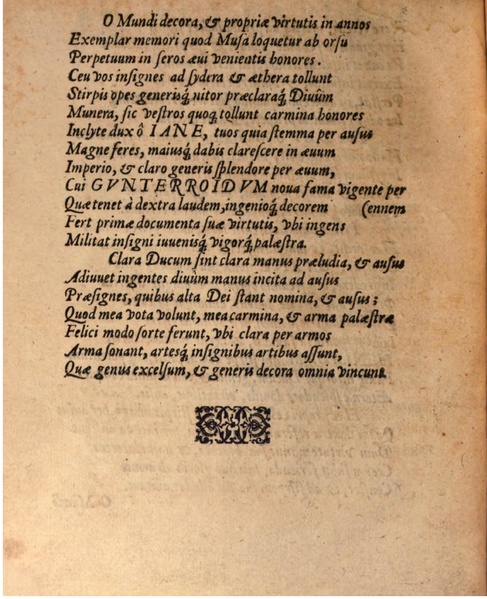 O Mundi decora, & propriæ virtutis in annos
Exemplar memori quod Musa loquetur ab orsu
Perpetuum in seros æui venientis honores.
Ceu vos insignes ad sydera & æthera tollunt
Stirpis opes generisq́; nitor præclaraq́; Diuûm
Munera, sic vestros quoq; tollunt carmina honores
Inclyte dux ô IANE, tuos quia stemma per ausus
Magne feres, maiusq́; dabis clarescere in æuum
Imperio, & claro generis splendore per æuum,
Cui GVNTERROIDVM noua fama vigente per
Quæ tenet à dextra laudem, ingenioq́; decorem (ennem
Fert primæ documenta suæ virtutis, vbi ingens
Militat insigni iuuenisq́; vigorq́; palæstra.
Clara Ducum sint clara manus præludia, & ausus
Adiuuet ingentes diuûm manus incita ad ausus
Præsignes, quibus alta Dei stant nomina, & ausus;
Quod mea vota volunt, mea carmina, & arma palæstræ
Felici modo sorte ferunt, vbi clara per armos
Arma sonant, artesq́; insignibus artibus assunt,
Quæ genus excelsum, & generis decora omnia vincunt.